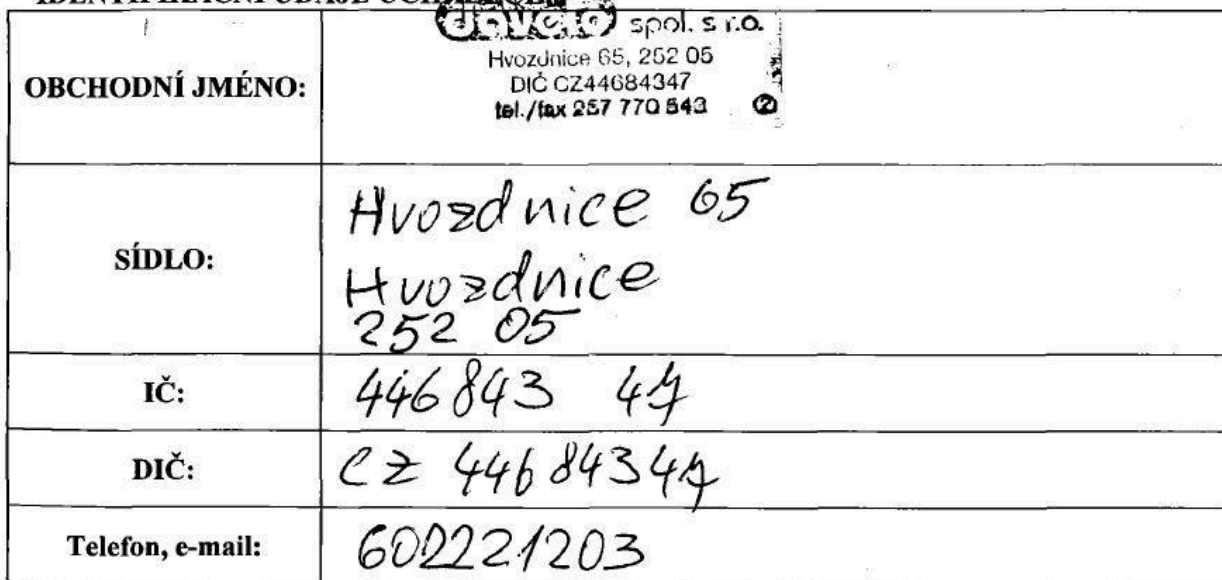 IDENTIFIKAČNÍ ÚDAJE
spol. s r.o.
Hvozdnice 65, 252 05
DIČ CZ44684347
tel./fax 257 770 543 2
OBCHODNÍ JMÉNO:
SÍDLO:
Hvozdnice 65
Hvozdnice
252 05
IČ:
446843 47
DIČ:
CZ 44684347
Telefon, e-mail:
602221203